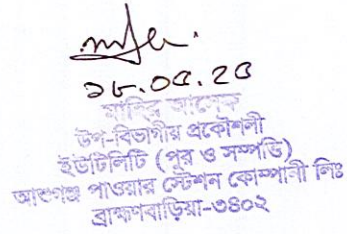 ১৮.০৫.২৫
উপ-বিভাগীয় প্রকৌশলী
ইউটিলিটি (পুর ও সম্পত্তি)
আশুগঞ্জ পাওয়ার স্টেশন কোম্পানী লিঃ
ব্রাহ্মণবাড়িয়া-৩৪০২